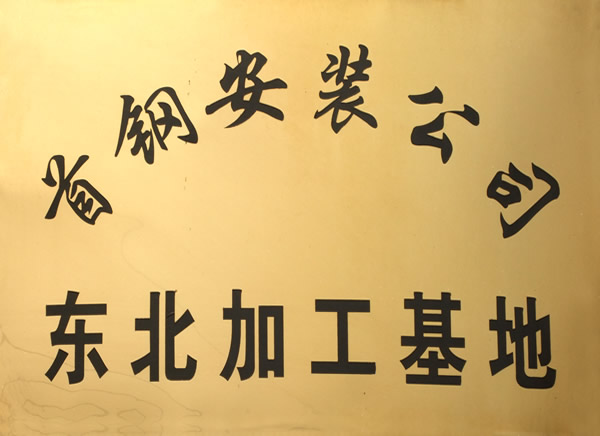 首钢安装公司
东北加工基地